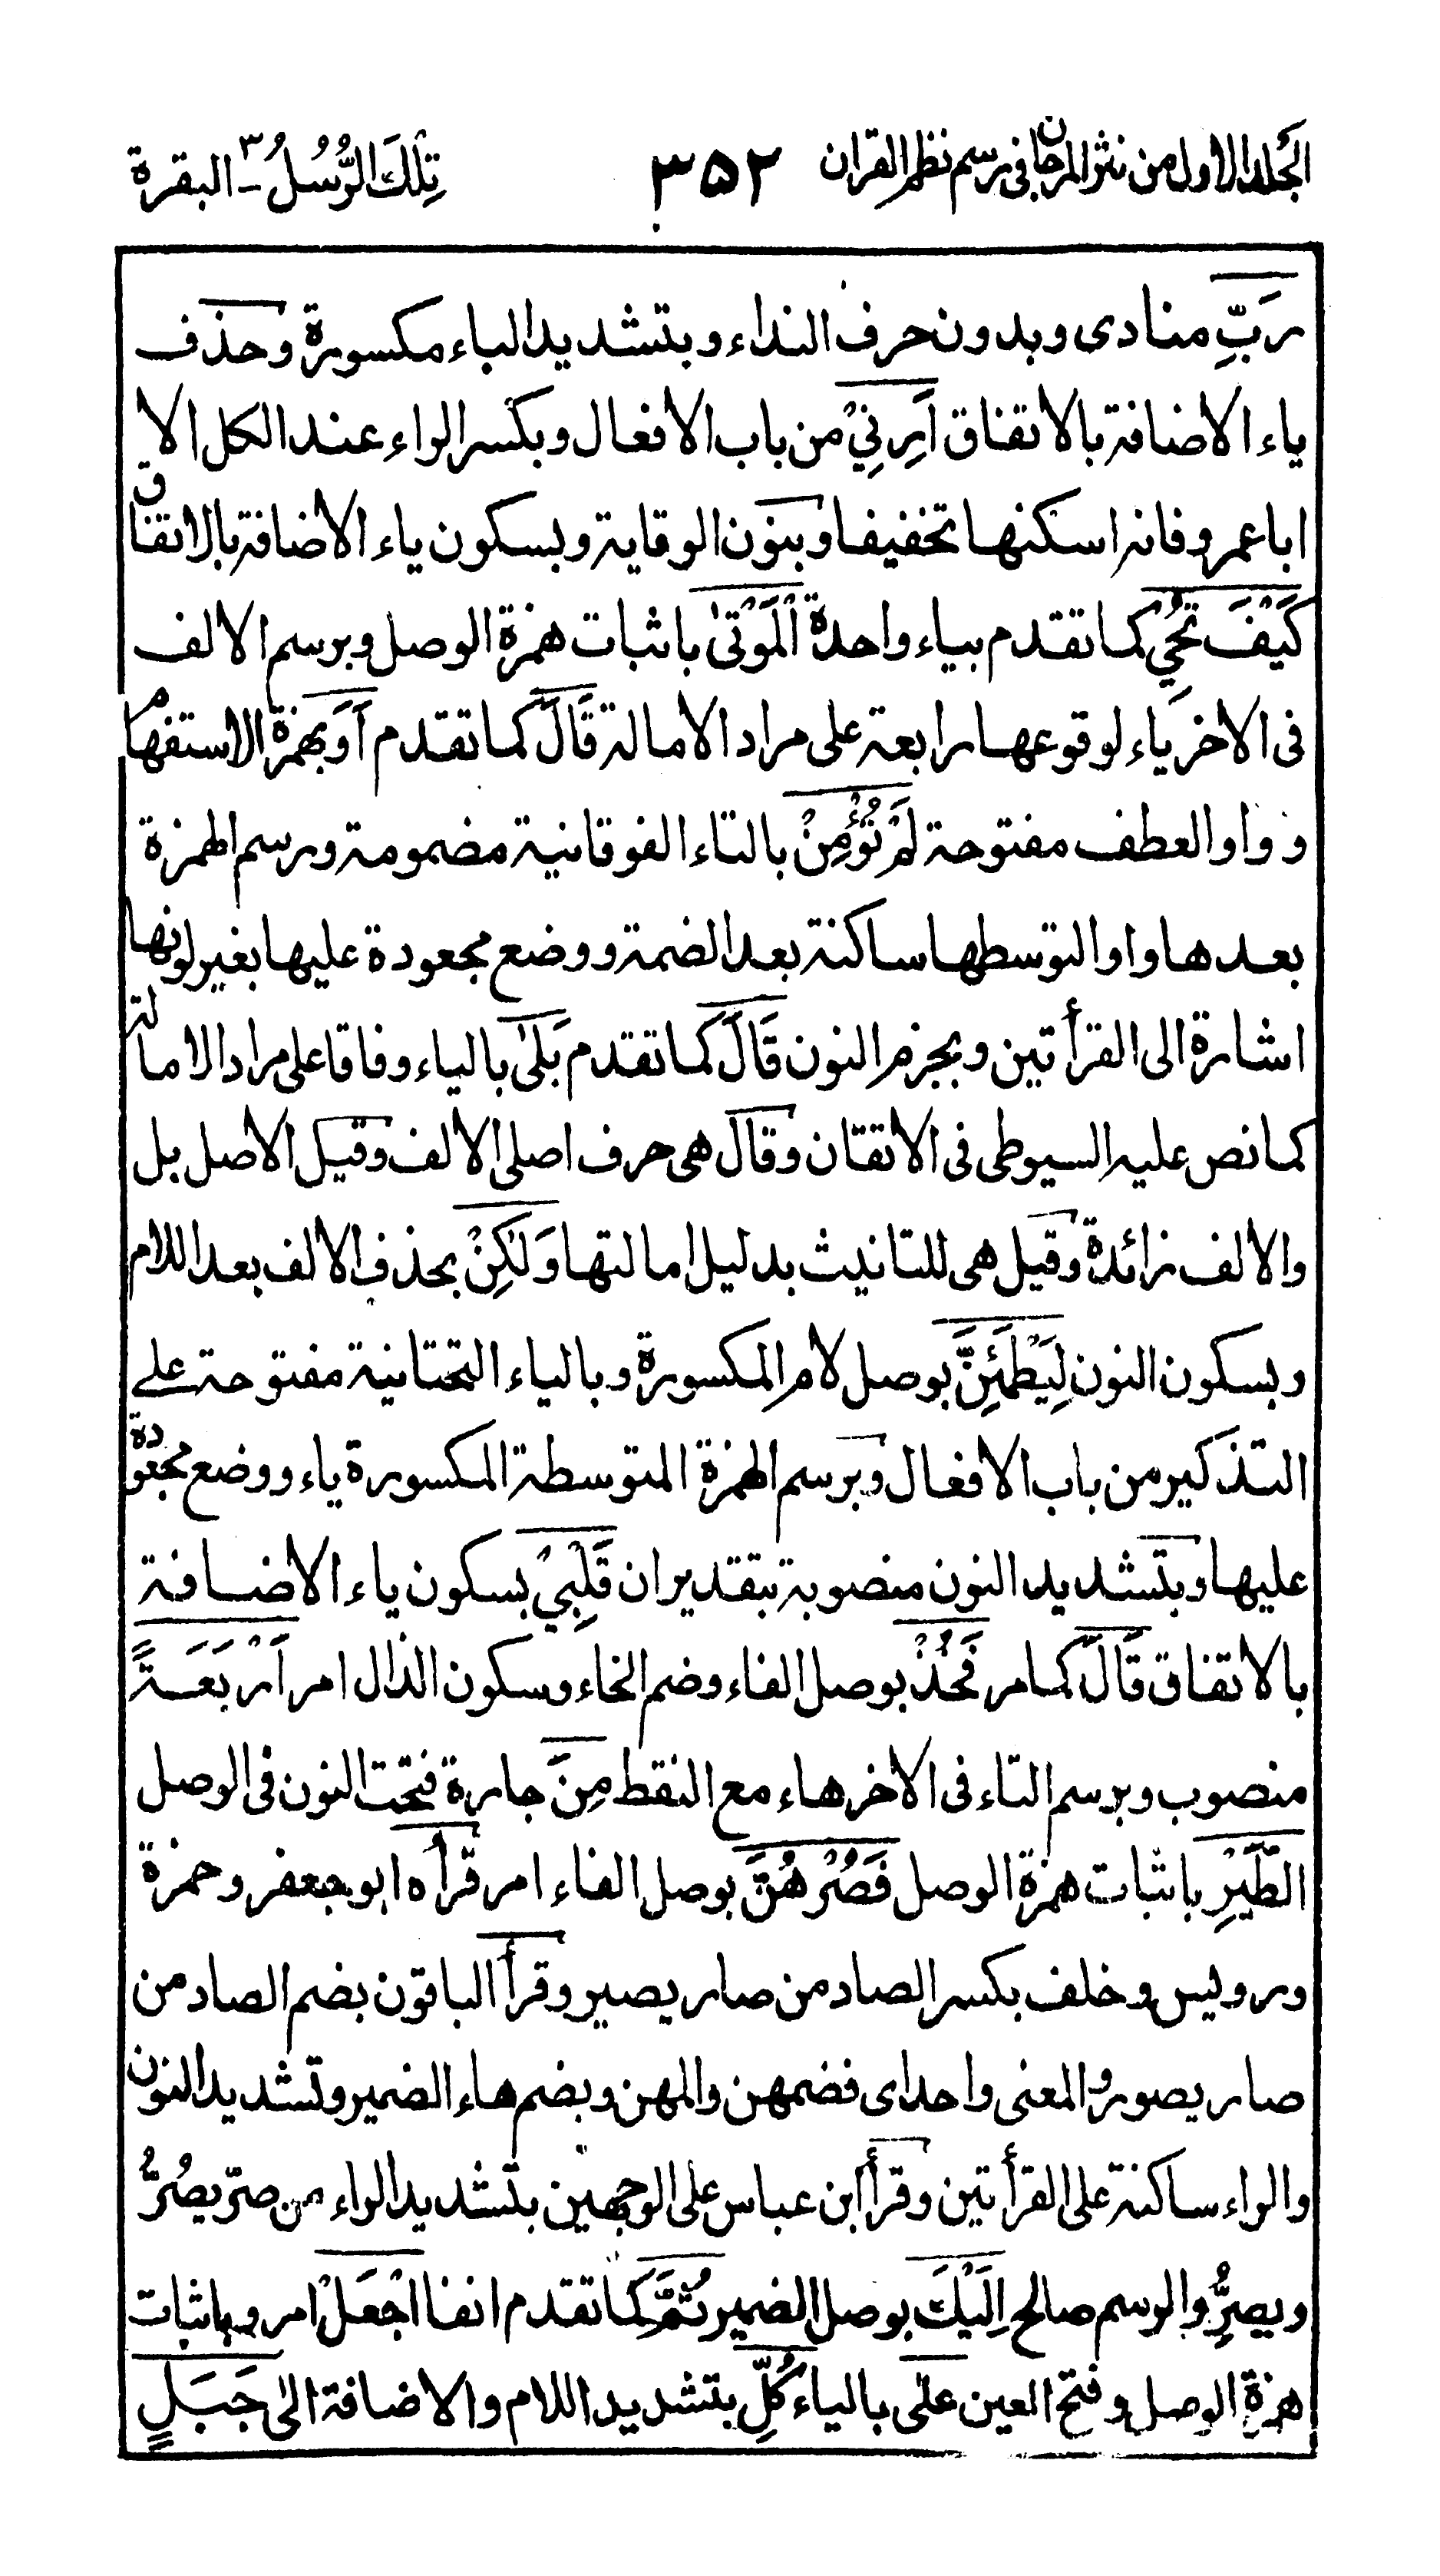 الجلد الاول من نثر المرجان فى رسم نظم القران ۳۵۲ تِلْكَ الرُّسُلُ ۳ - البقرة
رَبِّ منادى وبدون حرف النداء وبتشديد الباء مكسورة وحذف
ياء الاضافة بالاتفاق اَرِنِيْ من باب الافعال وبكسر الراء عند الكل الا
ابا عمرو فانه اسكنها تخفيفا وبنون الوقاية وبسكون ياء الاضافة بالاتفاق
كَيْفَ تُحْيِ كما تقدم بياء واحدة الْمَوْتٰى باثبات همزة الوصل وبرسم الالف
فى الاخر ياء لوقوعها رابعة على مراد الامالة قَالَ كما تقدم اَوَ بهمزة الاستفهام
و واو العطف مفتوحة لَمْ تُؤْمِنْ بالتاء الفوقانية مضمومة ورسم الهمزة
بعدها واوا لتوسطها ساكنة بعد الضمة ووضع مجعودة عليها بغير لونها
اشارة الى القرأتين وبجزم النون قَالَ كما تقدم بَلٰى بالياء وفاقا على مراد الامالة
كما نص عليه السيوطى فى الاتقان وقال هى حرف اصلى الالف وقيل الاصل بل
والالف زائدة وقيل هى للتانيث بدليل امالتها وَلٰكِنْ بحذف الالف بعد اللام
وبسكون النون لِيَطْمَئِنَّ بوصل لام المكسورة وبالياء التحتانية مفتوحة على
التذكير من باب الافعال وبرسم الهمزة المتوسطة المكسورة ياء ووضع مجعودة
عليها وبتشديد النون منصوبة بتقدير ان قَلْبِيْ بسكون ياء الاضافة
بالاتفاق قَالَ كما مر فَخُذْ بوصل الفاء وضم الخاء وسكون الذال امر اَرْبَعَةً
منصوب وبرسم التاء فى الاخر هاء مع النقط مِنَ جارة فتحت النون فى الوصل
الطَّيْرِ باثبات همزة الوصل فَصُرْهُنَّ بوصل الفاء امر قرأه ابو جعفر وحمزة
ورويس وخلف بكسر الصاد من صار يصير وقرأ الباقون بضم الصاد من
صار يصور والمعنى واحد اى فضمهن واملهن وبضم هاء الضمير وتشديد النون
والراء ساكنة على القرأتين وقرأ ابن عباس على الوجهين بتشديد الراء من صرّ يصُرُّ
ويصِرُّ والرسم صالح اِلَيْكَ بوصل الضمير ثُمَّ كما تقدم انفا اجْعَلْ امر وباثبات
همزة الوصل وفتح العين عَلٰى بالياء كُلِّ بتشديد اللام والاضافة الى جَبَلٍ